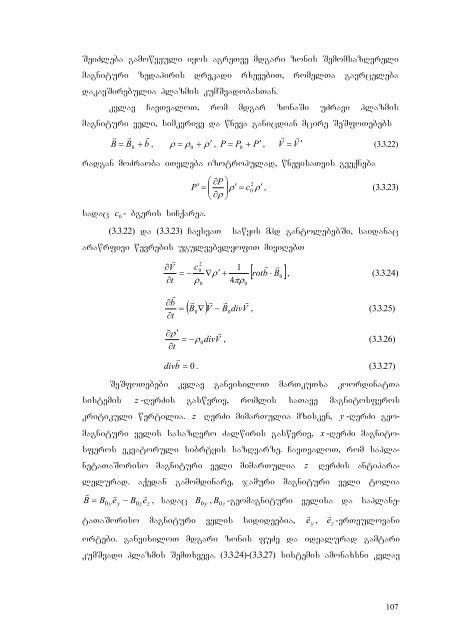 შეიძლება გამოწვეული იყოს აგრეთვე მდგარი ზონის შემომსაზღვრელი
მაგნიტური ზედაპირის დრეკადი რხევებით, რომელთა გავრცელება
დაკავშირებულია პლაზმის კუმშვადობასთან.
კვლავ ჩავთვალოთ, რომ მდგარ ზონაში უძრავი პლაზმის
მაგნიტური ველი, სიმკვრივე და წნევა განიცდიან მცირე შეშფოთებებს
B⃗ = B⃗₀ + b⃗ , ρ = ρ₀ + ρ′ , P = P₀ + P′ , V⃗ = V⃗′ (3.3.22)
რადგან მოძრაობა ითვლება იზოტროპულად, წნევისათვის გვექნება
P′ = (∂P/∂ρ) ρ′ = c₀² ρ′ , (3.3.23)
სადაც c₀ - ბგერის სიჩქარეა.
(3.3.22) და (3.3.23) ჩავსვათ საწყის მჰდ განტოლებებში, საიდანაც
არაწრფივი წევრების უგულვებელყოფით მივიღებთ
∂V⃗/∂t = − c₀²/ρ₀ ∇ρ′ + 1/4πρ₀ [rotb⃗ · B⃗₀] , (3.3.24)
∂b⃗/∂t = (B⃗₀∇)V⃗ − B⃗₀divV⃗ , (3.3.25)
∂ρ′/∂t = −ρ₀divV⃗ , (3.3.26)
divb⃗ = 0 . (3.3.27)
შეშფოთებები კვლავ განვიხილოთ მართკუთხა კოორდინატთა
სისტემის z -ღერძის გასწვრივ, რომლის სათავე მაგნიტოსფეროს
კრიტიკული წერტილია. z ღერძი მიმართულია მზისკენ, y -ღერძი გეო-
მაგნიტური ველის სასაზღვრო ძალწირის გასწვრივ, x -ღერძი მაგნიტო-
სფეროს ეკვატორული სიბრტყის საზღვარზე. ჩავთვალოთ, რომ საპლა-
ნეტათაშორისო მაგნიტური ველი მიმართულია z ღერძის ანტიპარა-
ლელურად. აქედან გამომდინარე, ჯამური მაგნიტური ველი ტოლია
B⃗ = B₀ᵧe⃗ᵧ − B₀ze⃗z , სადაც B₀ᵧ , B₀z -გეომაგნიტური ველისა და საპლანე-
ტათაშორისო მაგნიტური ველის სიდიდეებია, e⃗ᵧ , e⃗z -ერთეულოვანი
ორტები. განვიხილოთ მდგარი ზონის ფუძე და იდეალურად გამტარი
კუმშვადი პლაზმის შემთხვევა. (3.3.24)-(3.3.27) სისტემის ამონახსნი კვლავ
107